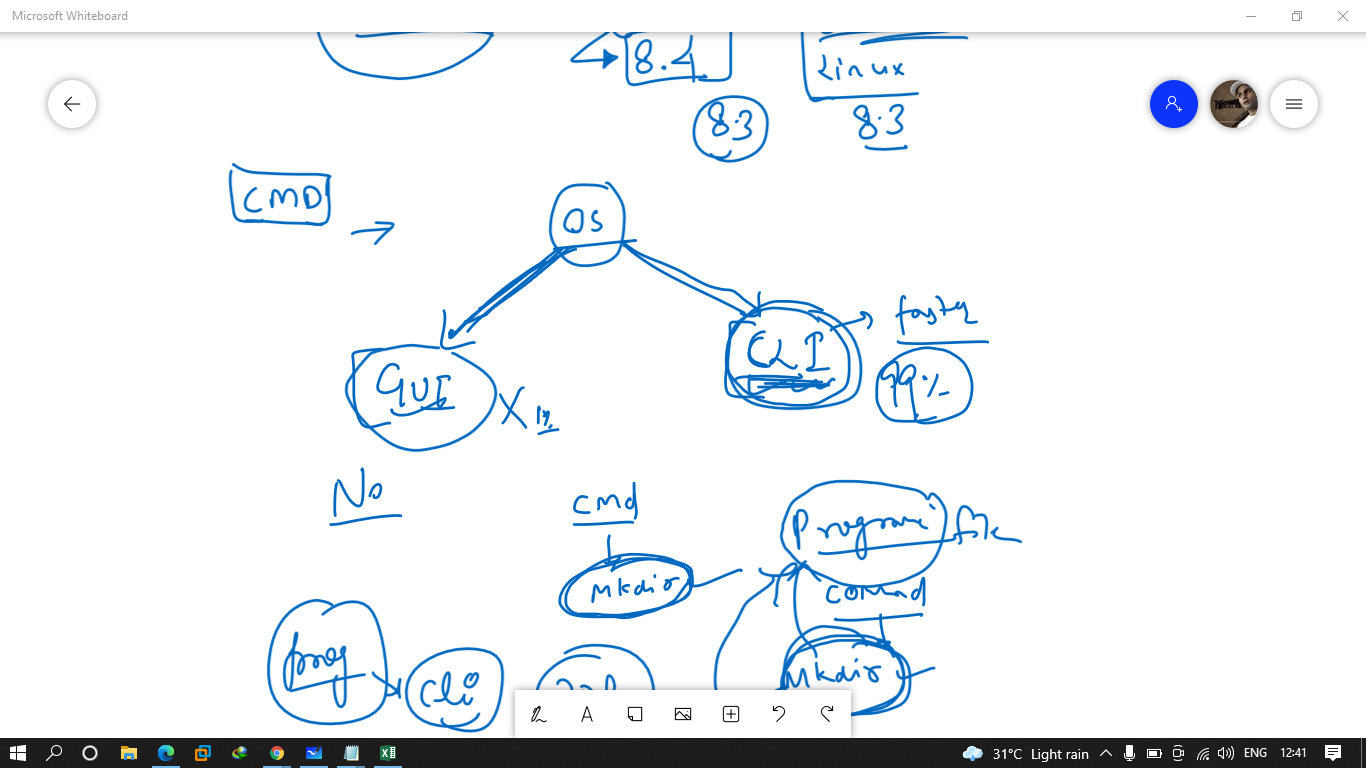 Microsoft Whiteboard
8.4
Linux
8.3
8.3
CMD
OS
GUI
X 1%
CLI
faster
99%
No
cmd
Mkdir
Program file
command
Mkdir
prog
cli
31°C Light rain
ENG
12:41